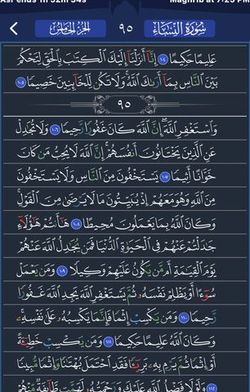 Asr ends in 1h 52m 54s
Maghrib at 7:25 PM
سُورَةُ النِّسَاءِ ٩٥ الجزء الخامس
عَلِيمًا حَكِيمًا ١٠٤ إِنَّا أَنزَلْنَا إِلَيْكَ الْكِتَٰبَ بِالْحَقِّ لِتَحْكُمَ
بَيْنَ النَّاسِ بِمَا أَرَىٰكَ اللَّهُ وَلَا تَكُن لِّلْخَائِنِينَ خَصِيمًا ١٠٥
٩٥
وَاسْتَغْفِرِ اللَّهَ إِنَّ اللَّهَ كَانَ غَفُورًا رَّحِيمًا ١٠٦ وَلَا تُجَٰدِلْ
عَنِ الَّذِينَ يَخْتَانُونَ أَنفُسَهُمْ إِنَّ اللَّهَ لَا يُحِبُّ مَن كَانَ
خَوَّانًا أَثِيمًا ١٠٧ يَسْتَخْفُونَ مِنَ النَّاسِ وَلَا يَسْتَخْفُونَ
مِنَ اللَّهِ وَهُوَ مَعَهُمْ إِذْ يُبَيِّتُونَ مَا لَا يَرْضَىٰ مِنَ الْقَوْلِ
وَكَانَ اللَّهُ بِمَا يَعْمَلُونَ مُحِيطًا ١٠٨ هَٰأَنتُمْ هَٰؤُلَاءِ
جَٰدَلْتُمْ عَنْهُمْ فِي الْحَيَوٰةِ الدُّنْيَا فَمَن يُجَٰدِلُ اللَّهَ عَنْهُمْ
يَوْمَ الْقِيَٰمَةِ أَم مَّن يَكُونُ عَلَيْهِمْ وَكِيلًا ١٠٩ وَمَن يَعْمَلْ
سُوءًا أَوْ يَظْلِمْ نَفْسَهُ ثُمَّ يَسْتَغْفِرِ اللَّهَ يَجِدِ اللَّهَ غَفُورًا
رَّحِيمًا ١١٠ وَمَن يَكْسِبْ إِثْمًا فَإِنَّمَا يَكْسِبُهُ عَلَىٰ نَفْسِهِ
وَكَانَ اللَّهُ عَلِيمًا حَكِيمًا ١١١ وَمَن يَكْسِبْ خَطِيئَةً
أَوْ إِثْمًا ثُمَّ يَرْمِ بِهِ بَرِيئًا فَقَدِ احْتَمَلَ بُهْتَٰنًا وَإِثْمًا مُّبِينًا
١١٢ وَلَوْلَا فَضْلُ اللَّهِ عَلَيْكَ وَرَحْمَتُهُ لَهَمَّت